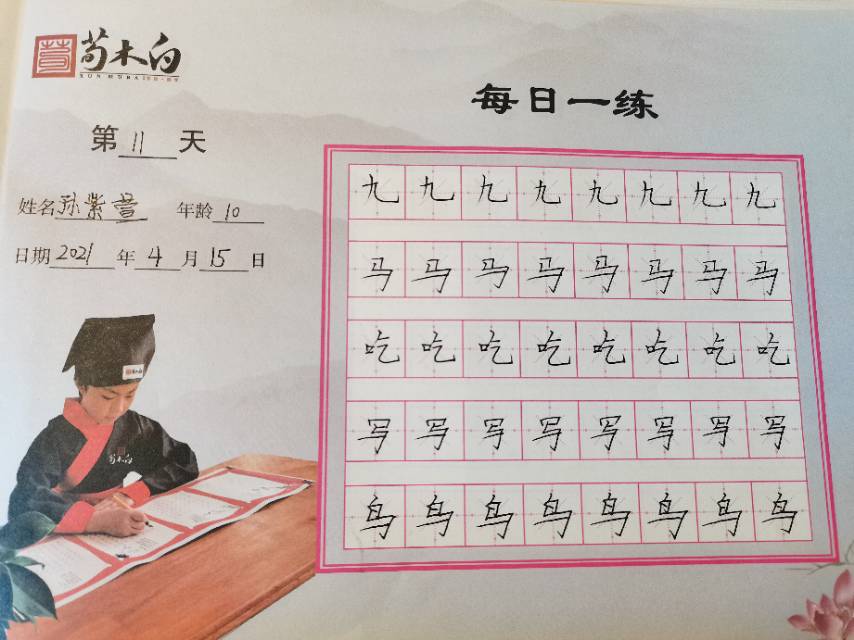 荀木白
每日一练
第 11 天
姓名 孙紫萱 年龄 10
日期 2021 年 4 月 15 日
九 九 九 九 九 九 九 九
马 马 马 马 马 马 马 马
吃 吃 吃 吃 吃 吃 吃 吃
写 写 写 写 写 写 写 写
鸟 鸟 鸟 鸟 鸟 鸟 鸟 鸟
荀木白